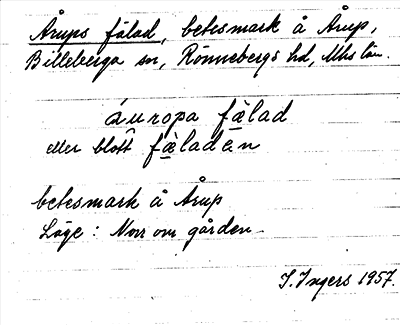 Årups fälad, betesmark å Årup,
Billeberga sn, Rönnebergs hd, Mhs län.
áuropa fälad
eller blott fäladen
betesmark å Årup
Läge: Norr om gården
I. Ingers 1957.